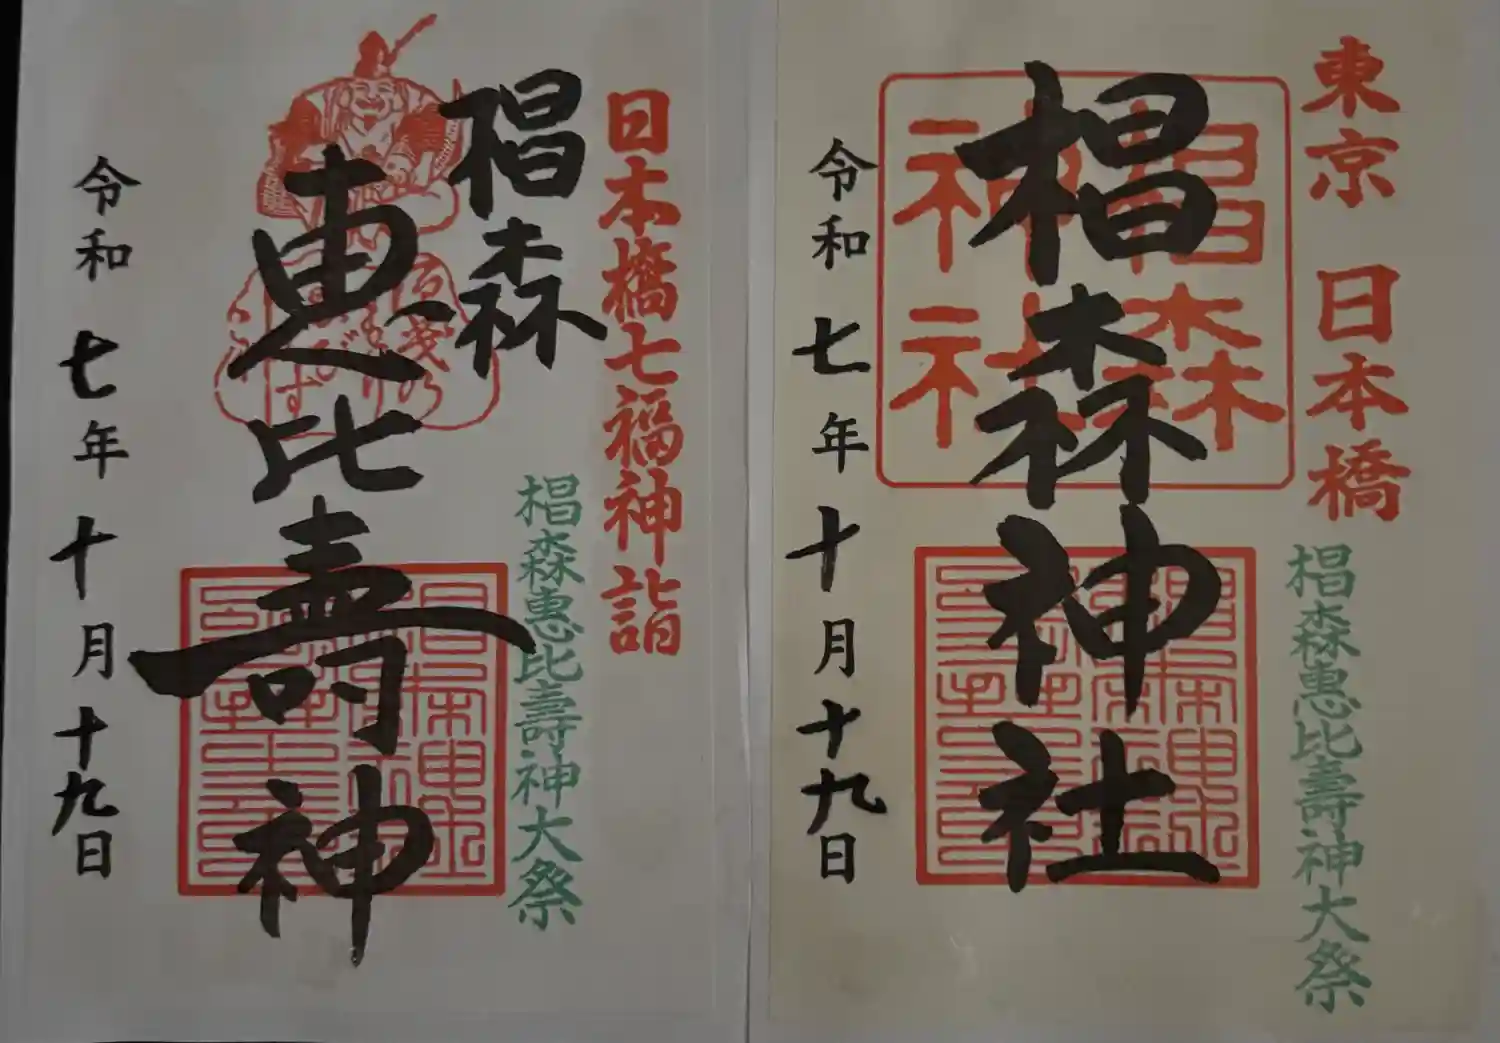 東京 日本橋
椙森神社
椙森神社
椙森惠比壽神大祭
令和七年十月十九日
日本橋七福神詣
椙森
恵比壽神
椙森惠比壽神大祭
令和七年十月十九日